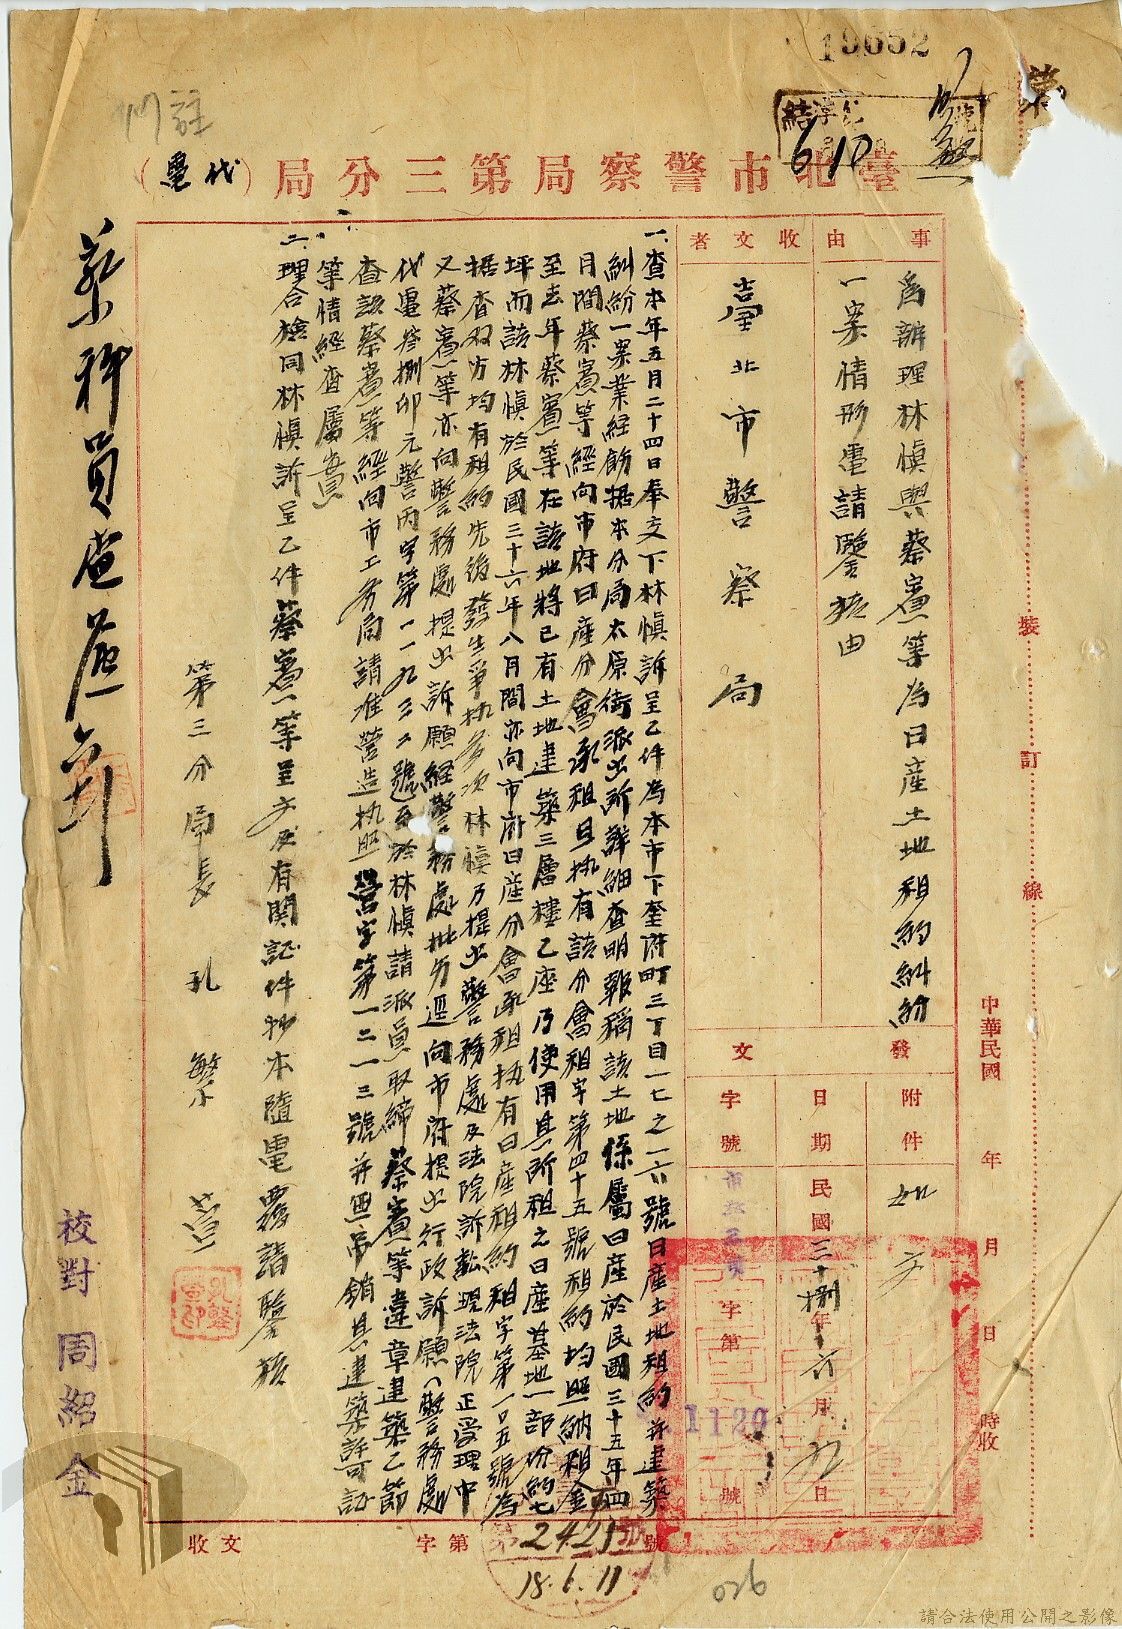 19652
臺北市警察局第三分局（代電）
事由
為辦理林慎與蔡寬等為日產土地租約糾紛
一案情形電請鑒核由
收文者
臺北市警察局
發文
附件
如文
日期
民國三十捌年六月九日
字號
字第
1129
號
一、查本年五月二十四日奉交下林慎訴呈乙件為本市下奎府町三丁目一七之一六號日產土地租約並建築
糾紛一案業経飭据本分局太原街派出所詳細查明報稱該土地係屬日產於民國三十五年四
月間蔡寬等經向市府日產分會承租且执有該分會租字第四十五號租約均照納租金
至去年蔡寬等在該地將已有土地建築三層樓乙座乃使用其所租之日產基地一部份約七
坪而該林慎於民國三十六年八月間亦向市府日產分會承租执有日產租約租字第一0五號為
据查双方均有租約先後發生爭执多次林慎乃提出警務處及法院訴訟現法院正受理中
又蔡寬等亦向警務處提出訴願経警務處批另逕向市府提出行政訴願（警務處
代電叁捌卯元警丙字第一一九三二號至於林慎請派員取締蔡寬等違章建築乙節
查該蔡寬等經向市工务局請准營造执照營字第一二一三號并無吊銷其建築許可証
等情經查屬實
二、理合檢同林慎訴呈乙件蔡寬等呈文及有関証件抄本隨電覆請鑒核
第三分局長 孔繁
蔡科員查 六
校對 周紹金
裝訂線
中華民國 年 月 日 時收
收文 字第 號
第2421號
18.6.11
026
6 10
註
請合法使用公開之影像